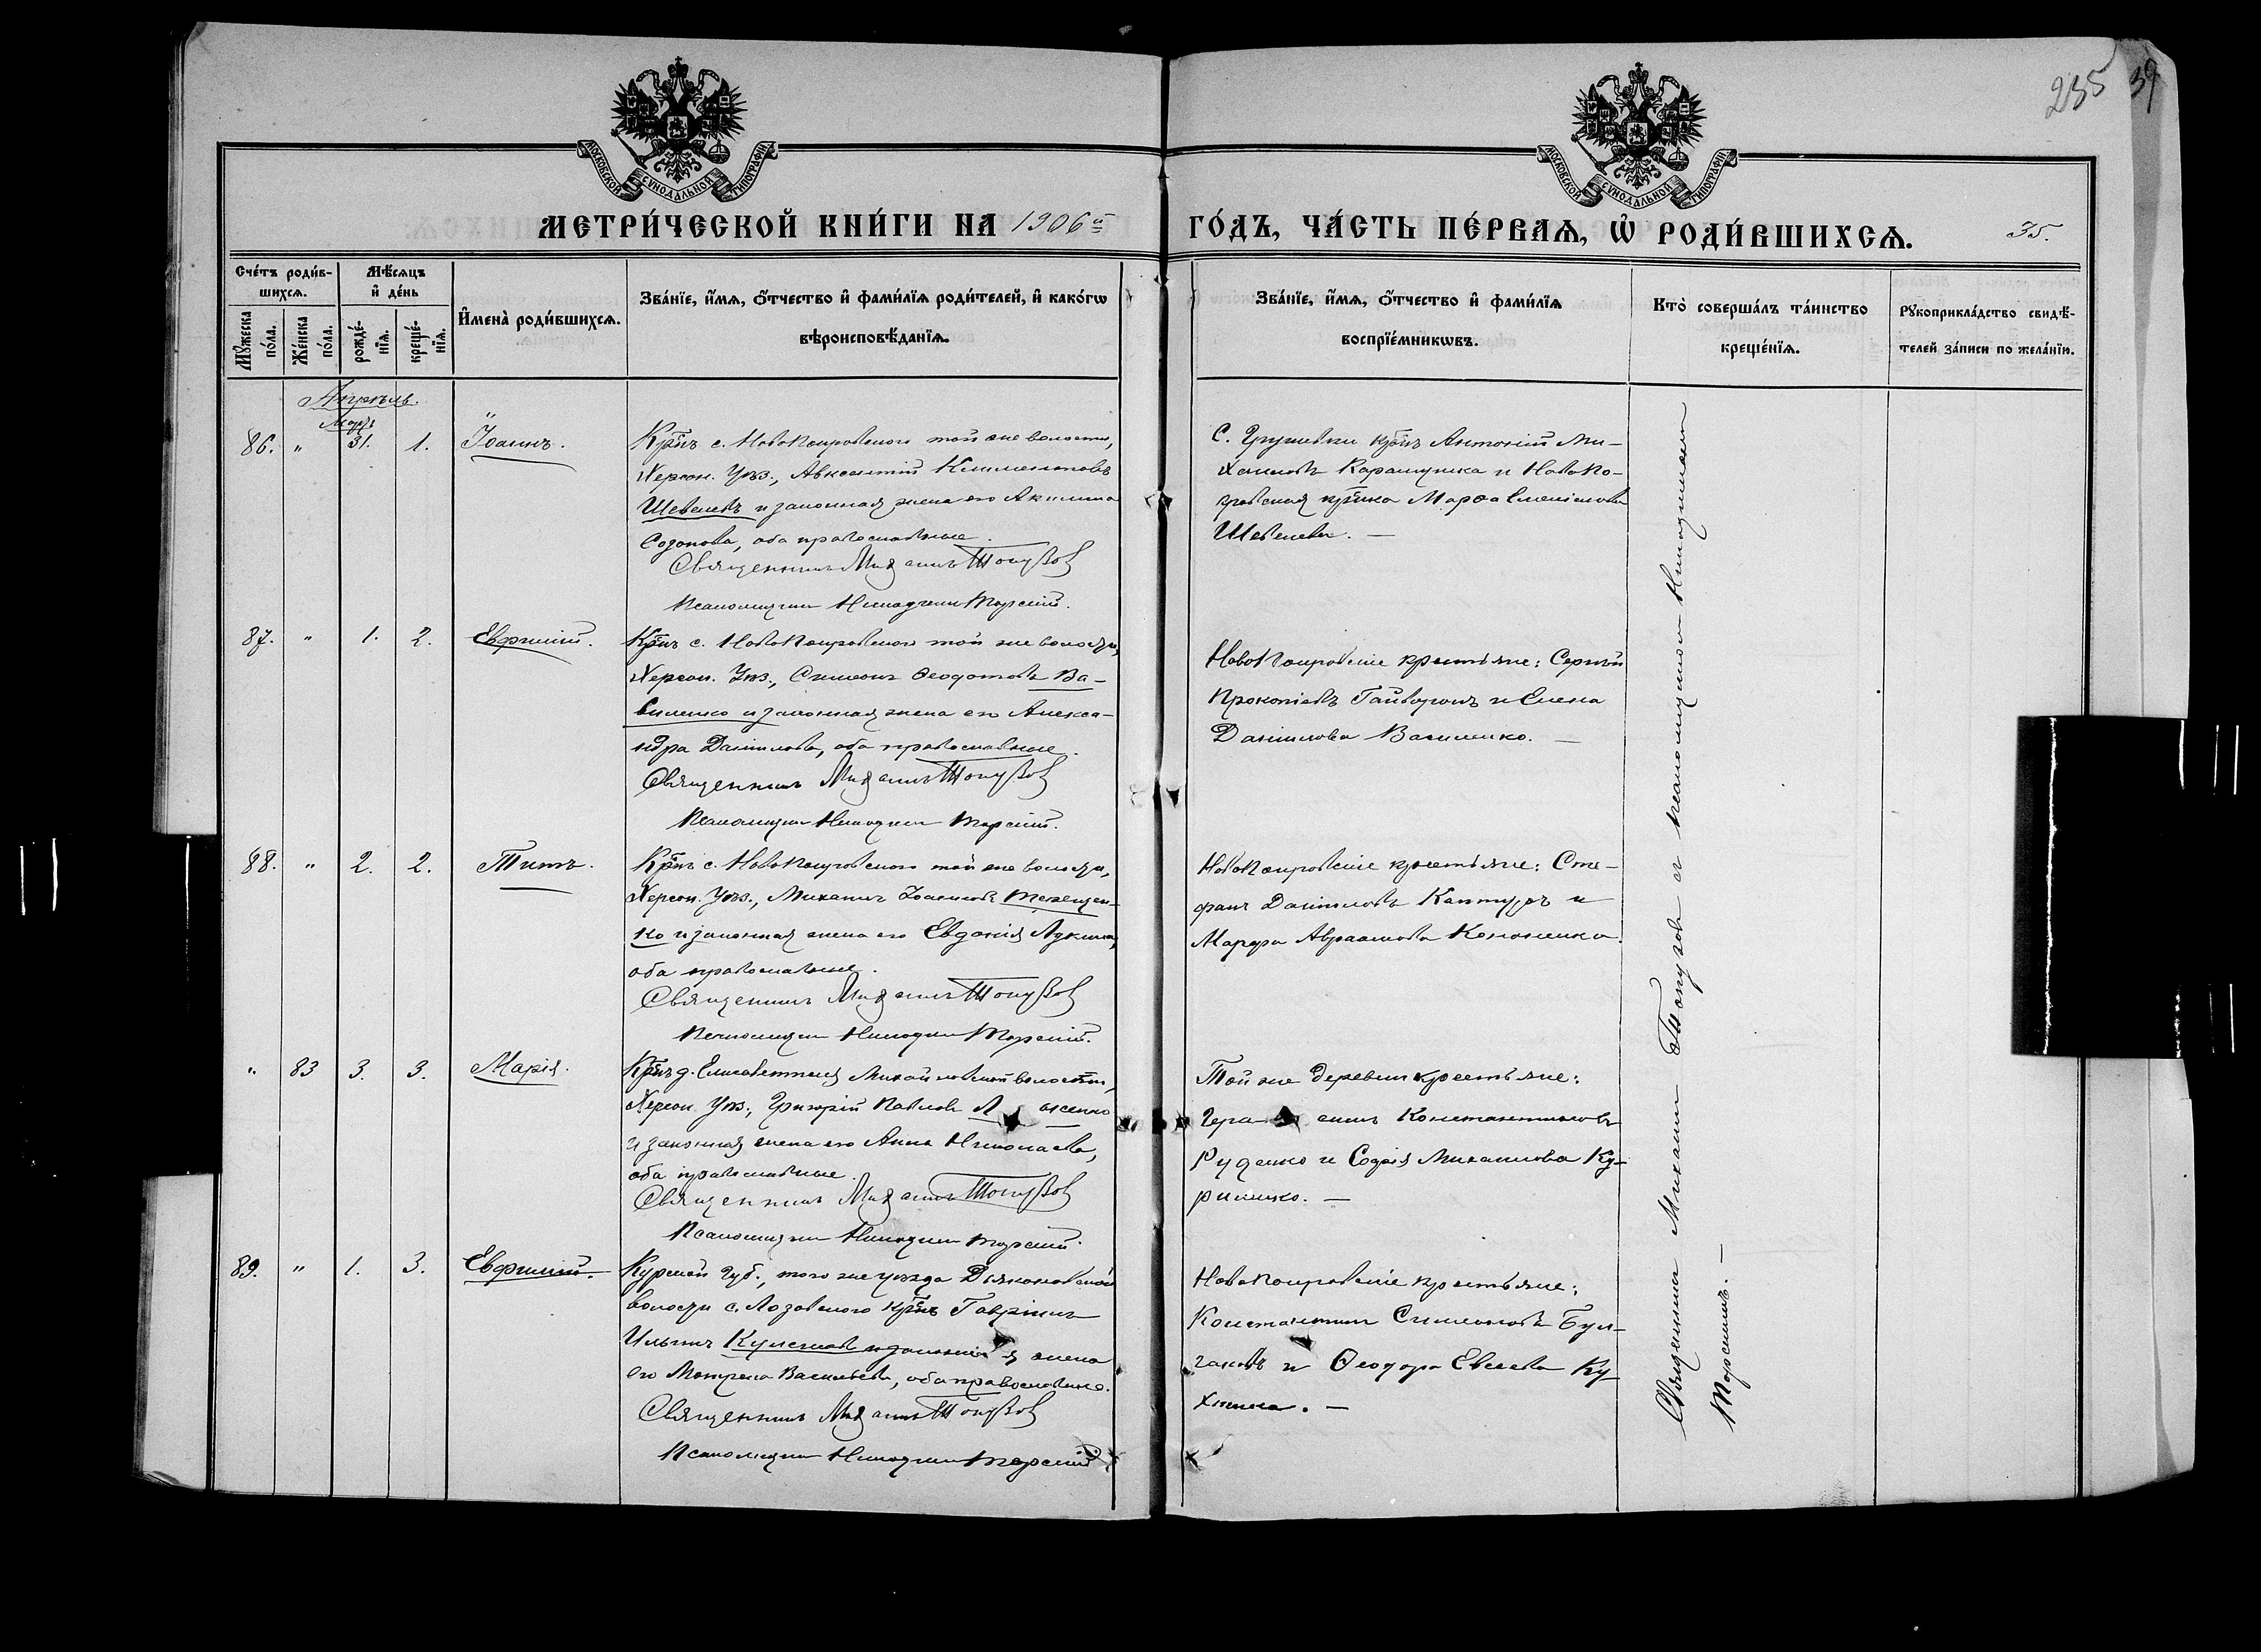 235 39
МОСКОВСКОЙ СУНОДАЛЬНОЙ ТИПОГРАФІИ
МОСКОВСКОЙ СУНОДАЛЬНОЙ ТИПОГРАФІИ
МЕТРИ́ЧЕСКОЙ КНИ́ГИ НА 1906й
ГО́ДЪ, ЧА́СТЬ ПЕ́РВАѦ, Ѡ҆ РОДИ́ВШИХСѦ. 35.
Сче́тъ роди́в-
шихсѧ.
Мѣ́сѧцъ
и҆ де́нь
Мꙋ́жеска по́ла.
Же́нска по́ла.
рожде́-
нїѧ.
креще́-
нїѧ.
И҆мена̀ роди́вшихсѧ.
Зва́нїе, и҆́мѧ, ѻ҆́тчество и҆ фами́лїѧ роди́телей, и҆ како́гѡ
вѣроисповѣ́данїѧ.
Зва́нїе, и҆́мѧ, ѻ҆́тчество и҆ фами́лїѧ
воспрїе́мникѡвъ.
Кто̀ соверша́лъ та́инство
креще́нїѧ.
Рꙋкоприкла́дство свидѣ́-
телей за́писи по жела́нїю.
Апрѣль.
Мартъ
86. " 31. 1. Іоаннъ.
Крѣнъ с. НовоПокровского той же волости,
Херсон. Уѣз., Авксентій Климентовъ
Шевелевъ и законная жена его Акилина
Созонова, оба православные.
Священникъ Михаилъ Топузовъ
Псаломщикъ Никодимъ Торскій.
С. Грушевки крѣнъ Антоній Ми-
хаиловъ и НовоПо-
кровская крѣнка Марѳа
Шевелева. —
87. " 1. 2. Евфимій.
Крѣнъ с. НовоПокровского той же волости,
Херсон. Уѣз., Симеонъ Ѳеодотовъ Ва-
силенко и законная жена его Алекса-
ндра Даніилова, оба православные.
Священникъ Михаилъ Топузовъ
Псаломщикъ Никодимъ Торскій.
НовоПокровскіе крестьяне: Сергѣй
Прокопіевъ и Елена
Даніилова Василенко. —
88. " 2. 2. Титъ.
Крѣнъ с. НовоПокровского той же волости,
Херсон. Уѣз., Михаилъ Іоанновъ Терещен-
ко и законная жена его Евдокія Лукина,
оба православные.
Священникъ Михаилъ Топузовъ
Псаломщикъ Никодимъ Торскій.
НовоПокровскіе крестьяне: Сте-
фанъ Даніиловъ Кантуръ и
Марфа Авраамова Кононенко.
" 83 3. 3. Марія.
Крѣнъ д. Михайловской волости,
Херсон. Уѣз., Григорій Павловъ
и законная жена его Анна Николаева,
оба православные.
Священникъ Михаилъ Топузовъ
Псаломщикъ Никодимъ Торскій.
Той же деревни крестьяне:
Константиновъ
Руденко и Софія Михаилова Ку-
риленко. —
89. " 1. 3. Евфимій.
Курской губ., того же уѣзда Дьяконовской
волости с. Лозовского крѣнъ Гавріилъ
Ильинъ и законная жена
его Матрена Васильева, оба православные.
Священникъ Михаилъ Топузовъ
Псаломщикъ Никодимъ Торскій
НовоПокровскіе крестьяне:
Константинъ Симеоновъ Бул-
гаковъ и Ѳеодора Евсеева Ку-
хтина. —
Священникъ Михаилъ Топузовъ съ псаломщикомъ Никодимомъ
Торскимъ. —